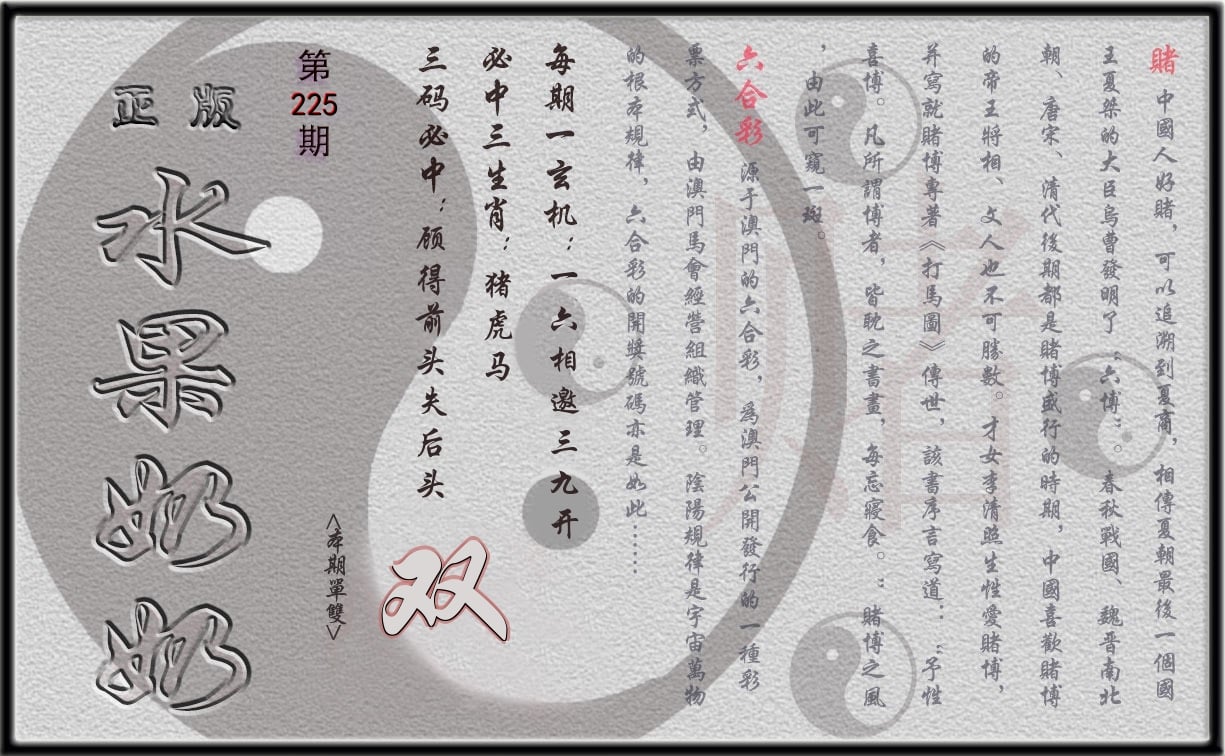 賭 中國人好賭，可以追溯到夏商，相傳夏朝最後一個國
王夏桀的大臣烏曹發明了“六博”。春秋戰國、魏晋南北
朝、唐宋、清代後期都是賭博盛行的時期，中國喜歡賭博
的帝王將相、文人也不可勝數。才女李清照生性愛賭博，
并寫就賭博專著《打馬圖》傳世，該書序言寫道：“予性
喜博。凡所謂博者，皆耽之晝夜，每忘寢食。”賭博之風
，由此可窺一斑。
六合彩 源于澳門的六合彩，爲澳門公開發行的一種彩
票方式，由澳門馬會經營組織管理。陰陽規律是宇宙萬物
的根本規律，六合彩的開獎號碼亦是如此……
每期一玄机：一六相邀三九开
必中三生肖：猪虎马
三码必中：顾得前头失后头
双
<本期單雙>
第
225
期
正版
水果奶奶
賭